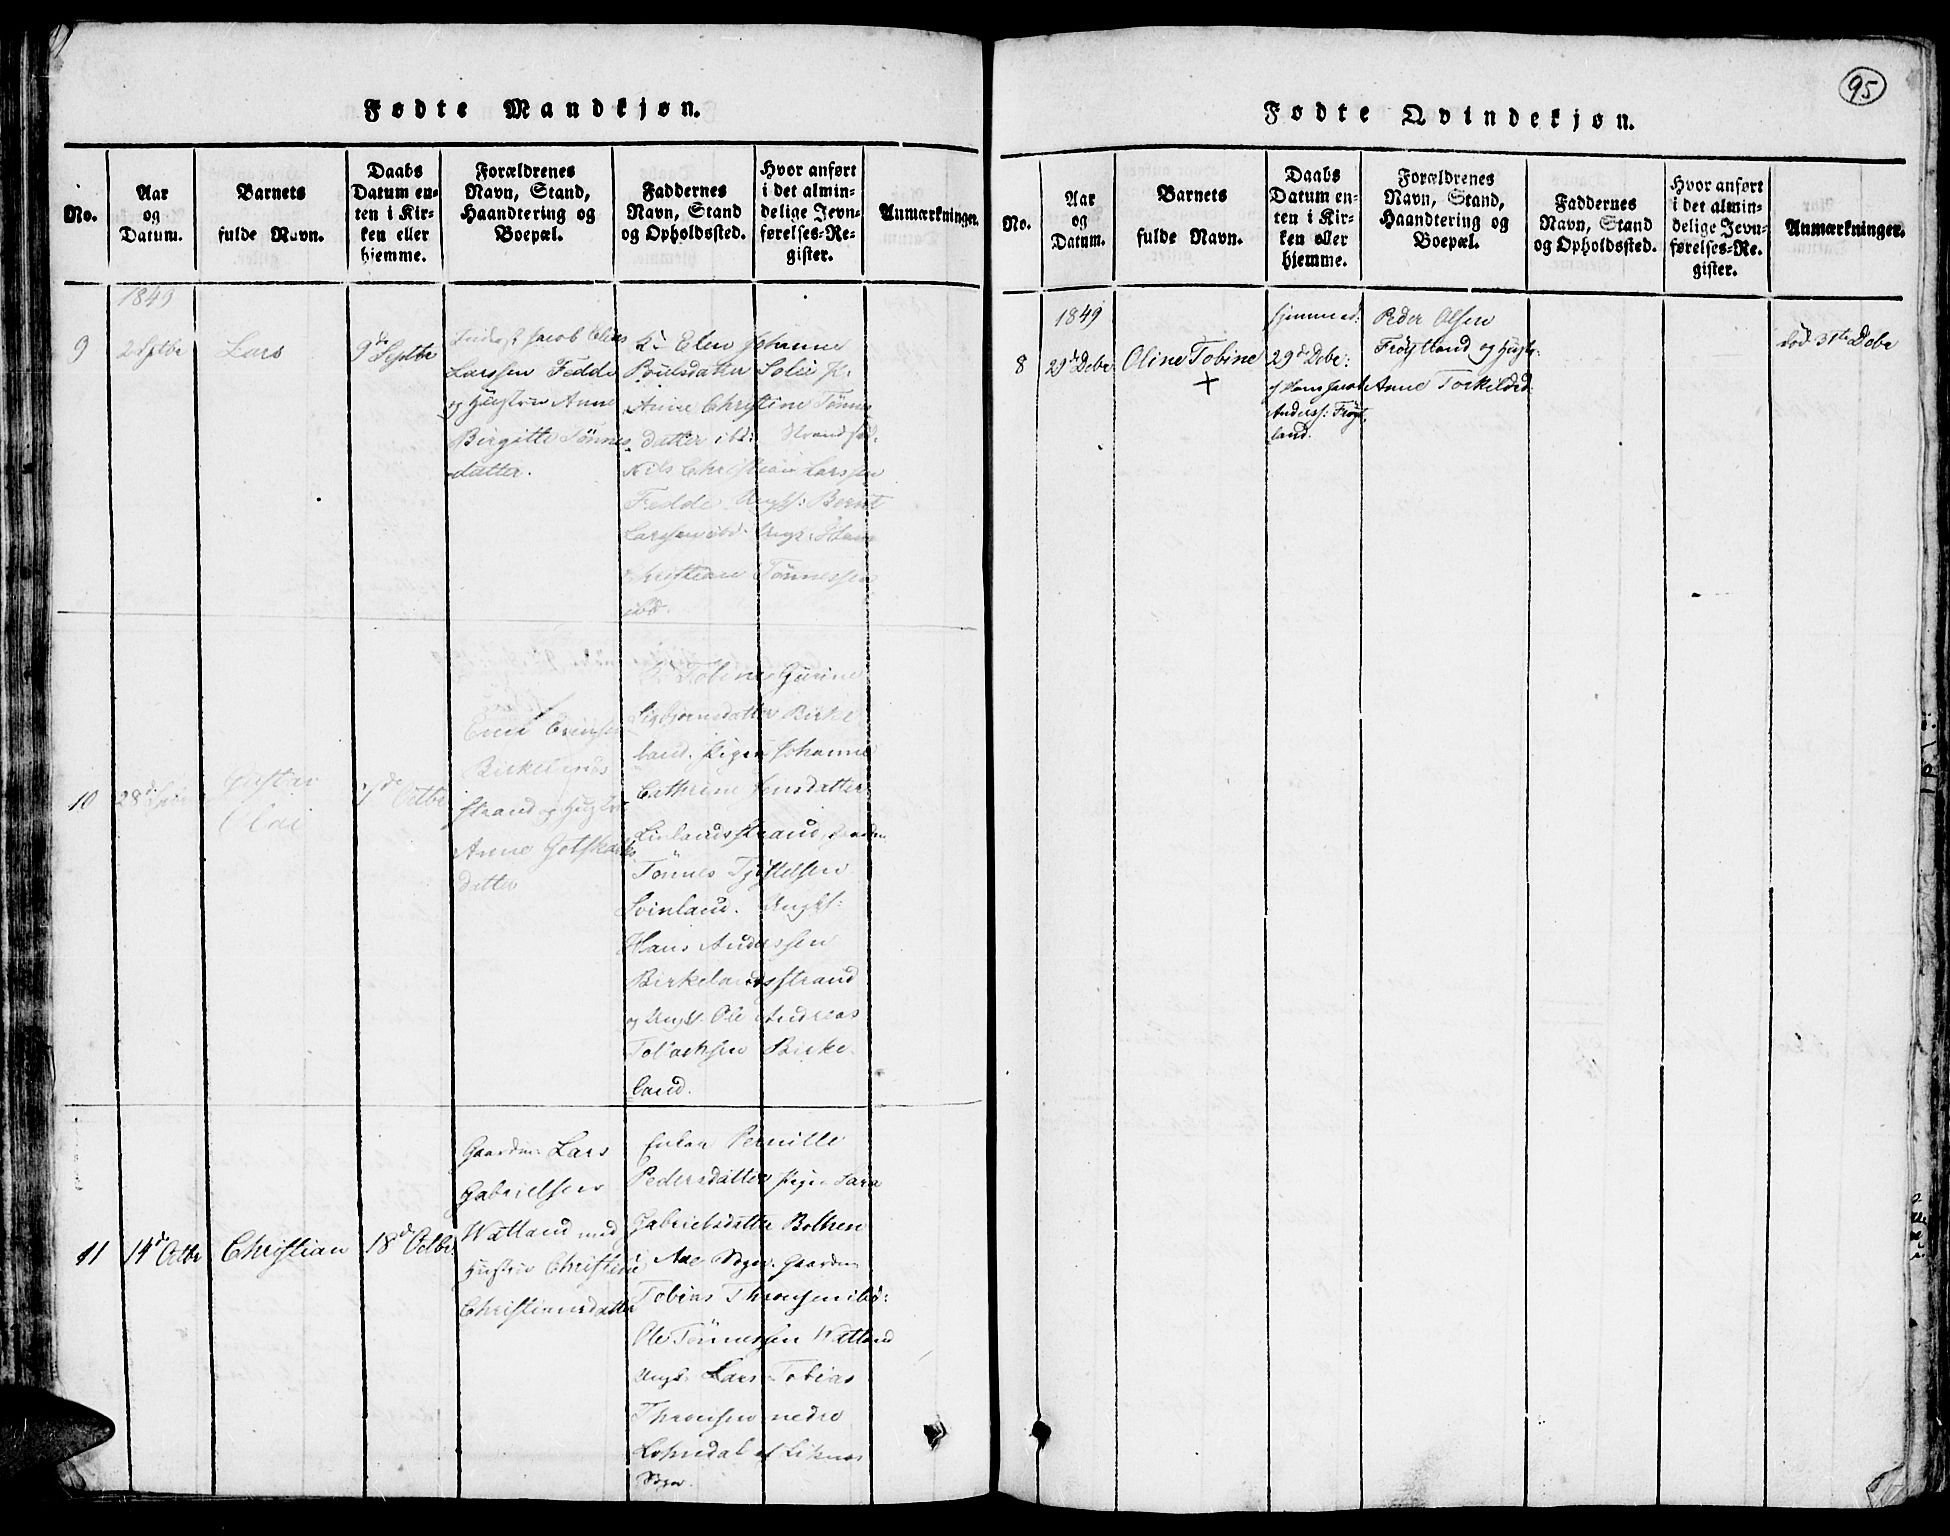 Fødte Mandkjøn.
No.
Aar
og
Datum.
Barnets
fulde Navn.
Daabs
Datum en-
ten i Kir-
ken eller
hjemme.
Forældrenes
Navn, Stand,
Haandtering og
Boepæl.
Faddernes
Navn, Stand
og Opholdssted.
Hvor anført
i det almin-
delige Jevn-
førelses-Re-
gister.
Anmærkninger.
1849
9
2 Septbr
Lars
9de Septbr
Jacob Elias
Larssen Fedde
og Hustru Anne
Birgitte Tönnes
datter.
K: Elen Johanne
Poulsdatter Solie P:
Anne Christine Tönnes
datter ibd:
Nils Christian Larssen
Fedde Ungk: Bernt
Larssen ibd. Ungk: Hans
Christian Tönnessen
ibd.
10
28de
Gustav
Olai
7de Octbr
Birkelands
strand og Hustru
Anne Gotskalks
datter
Tobine Gurine
Sigbjørnsdatter Birke
land. Pigen Johanne
Cathrine Jensdatter
strand,
Tönnes Tjøstelsen
Svinland. Ungk:
Hans Anderssen
Birkelandsstrand
og Ungk. Ole Andreas
Tollachsen Birke
land.
11
14d Octbr
Christian
18d Octbr
Gaardm: Lars
Gabrielsen
Watland med
Hustru Christine
Christiansdatter
Enkan Pernille
Pedersdatter Pigen Sara
Gabrielsdatter
Aae Sogn. Gaardm
Tobias Thronsen ibd:
Ole Tönnessen Watland
Ungk. Lars Tobias
Thronsen nedre
af
Sogn.
95
Fødte Qvindekjøn.
No.
Aar
og
Datum.
Barnets
fulde Navn.
Daabs
Datum en-
ten i Kir-
ken eller
hjemme.
Forældrenes
Navn, Stand,
Haandtering og
Boepæl.
Faddernes
Navn, Stand
og Opholdssted.
Hvor anført
i det almin-
delige Jevn-
førelses-Re-
gister.
Anmærkninger.
1849
8
29d Debr
Oline Tobine
+
hjemmed:
29d Debr:
af Hans Jacob
Anderss: Frøyt
land.
Peder Olsen
Frøytland og Hustr:
Anne Torkildsd.
död 31te Debr